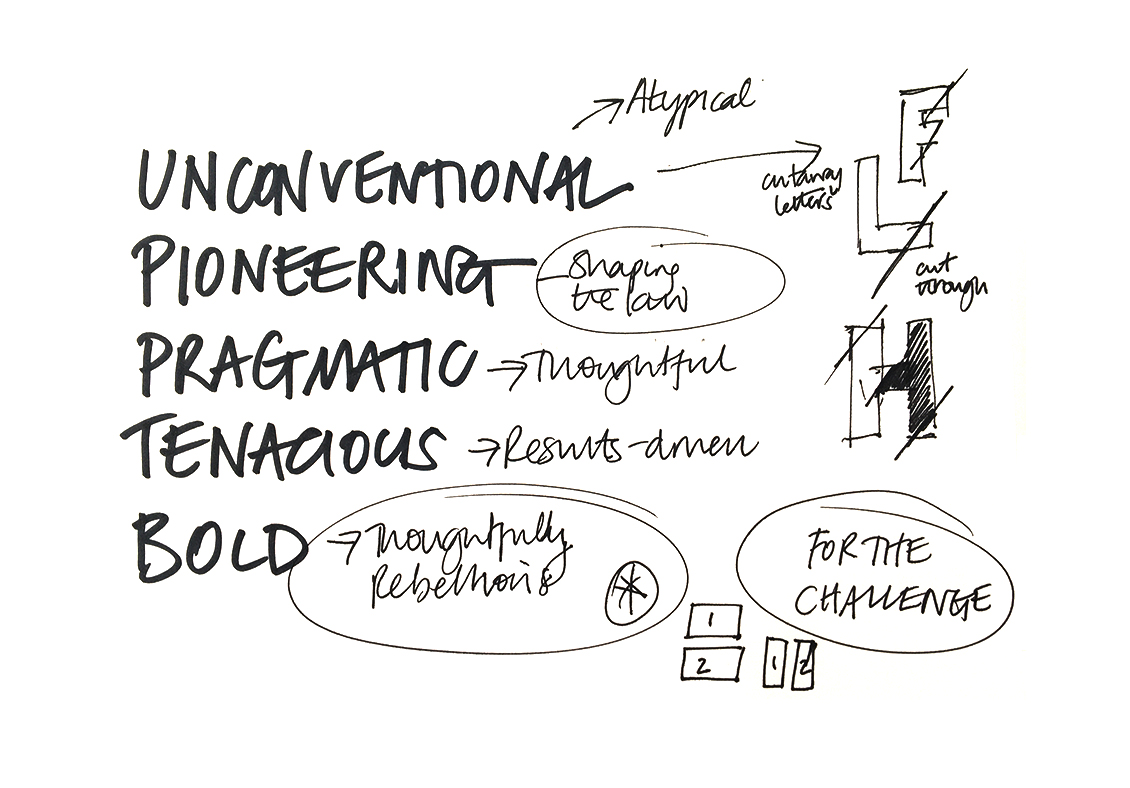 Atypical
UNCONVENTIONAL
cutaway
letters
F
L
PIONEERING
shaping
the law
cut
through
PRAGMATIC
Thoughtful
H
TENACIOUS
Results-driven
BOLD
Thoughtfully
Rebellious
*
FOR THE
CHALLENGE
1
2
1 2